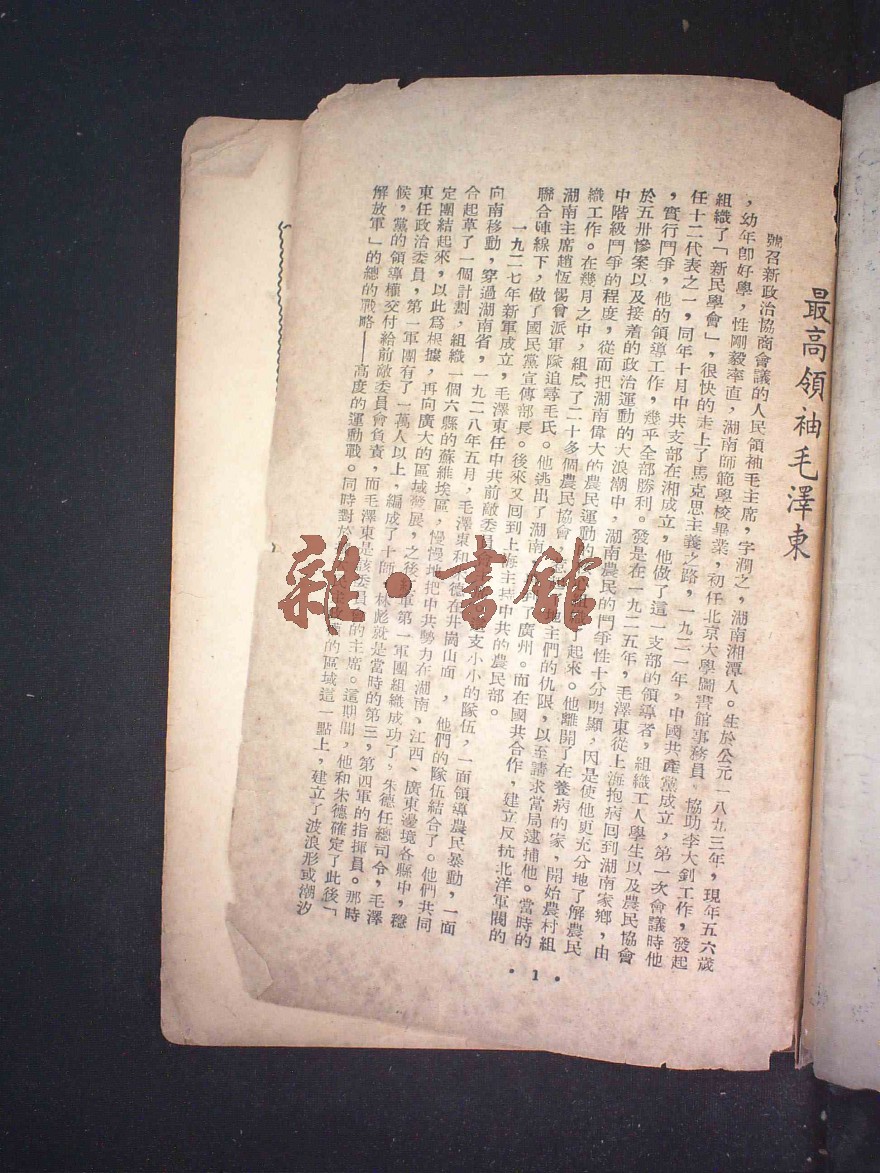 最高領袖毛澤東
號召新政治協商會議的人民領袖毛主席，字潤之，湖南湘潭人。生於公元一八九三年，現年五六歲
，幼年卽好學，性剛毅率直，湖南師範學校畢業，初任北京大學圖書館事務員。協助李大釗工作，發起
組織了「新民學會」，很快的走上了馬克思主義之路，一九二一年，中國共產黨成立，第一次會議時他
任十二代表之一，同年十月中共支部在湘成立，他做了這一支部的領導者，組織工人學生以及農民協會
，實行鬥爭，他的領導工作，幾乎全部勝利。發是在一九二五年，毛澤東從上海抱病回到湖南家鄉，由
於五卅慘案以及接着的政治運動的大浪潮中，湖南農民的鬥爭性十分明顯，因是使他更充分地了解農民
中階級鬥爭的程度，從而把湖南偉大的農民運動的起來。他離開了在養病的家，開始農村組
織工作。在幾月之中，組成了二十多個農民協會，地主們的仇限，以至請求當局逮捕他。當時的
湖南主席趙恆惕會派軍隊追尋毛氏。他逃出了湖南，了廣州。而在國共合作，建立反抗北洋軍閥的
聯合陣線下，做了國民黨宣傳部長。後來又回到上海主持中共的農民部。
一九二七年新軍成立，毛澤東任中共前敵委員支小小的隊伍，一面領導農民暴動，一面
向南移動，穿過湖南省，一九二八年五月，毛澤東和朱德在井崗山面，他們的隊伍結合了。他們共同
合起草了一個計劃，組織一個六縣的蘇維埃區，慢慢地把中共勢力在湖南、江西、廣東邊境各縣中，穩
定團結起來，以此爲根據，再向廣大的區域發展，之後軍第一軍團組織成功了。朱德任總司令，毛澤
東任政治委員，第一軍團有了一萬人以上，編成了十師，林彪就是當時的第三，第四軍的指揮員。那時
候，黨的領導權交付給前敵委員會負責，而毛澤東是該委員的主席。這期間，他和朱德確定了此後「
解放軍」的總的戰略——高度的運動戰。同時對於的區域這一點上，建立了波浪形或潮汐
• 1 •
雜·書館